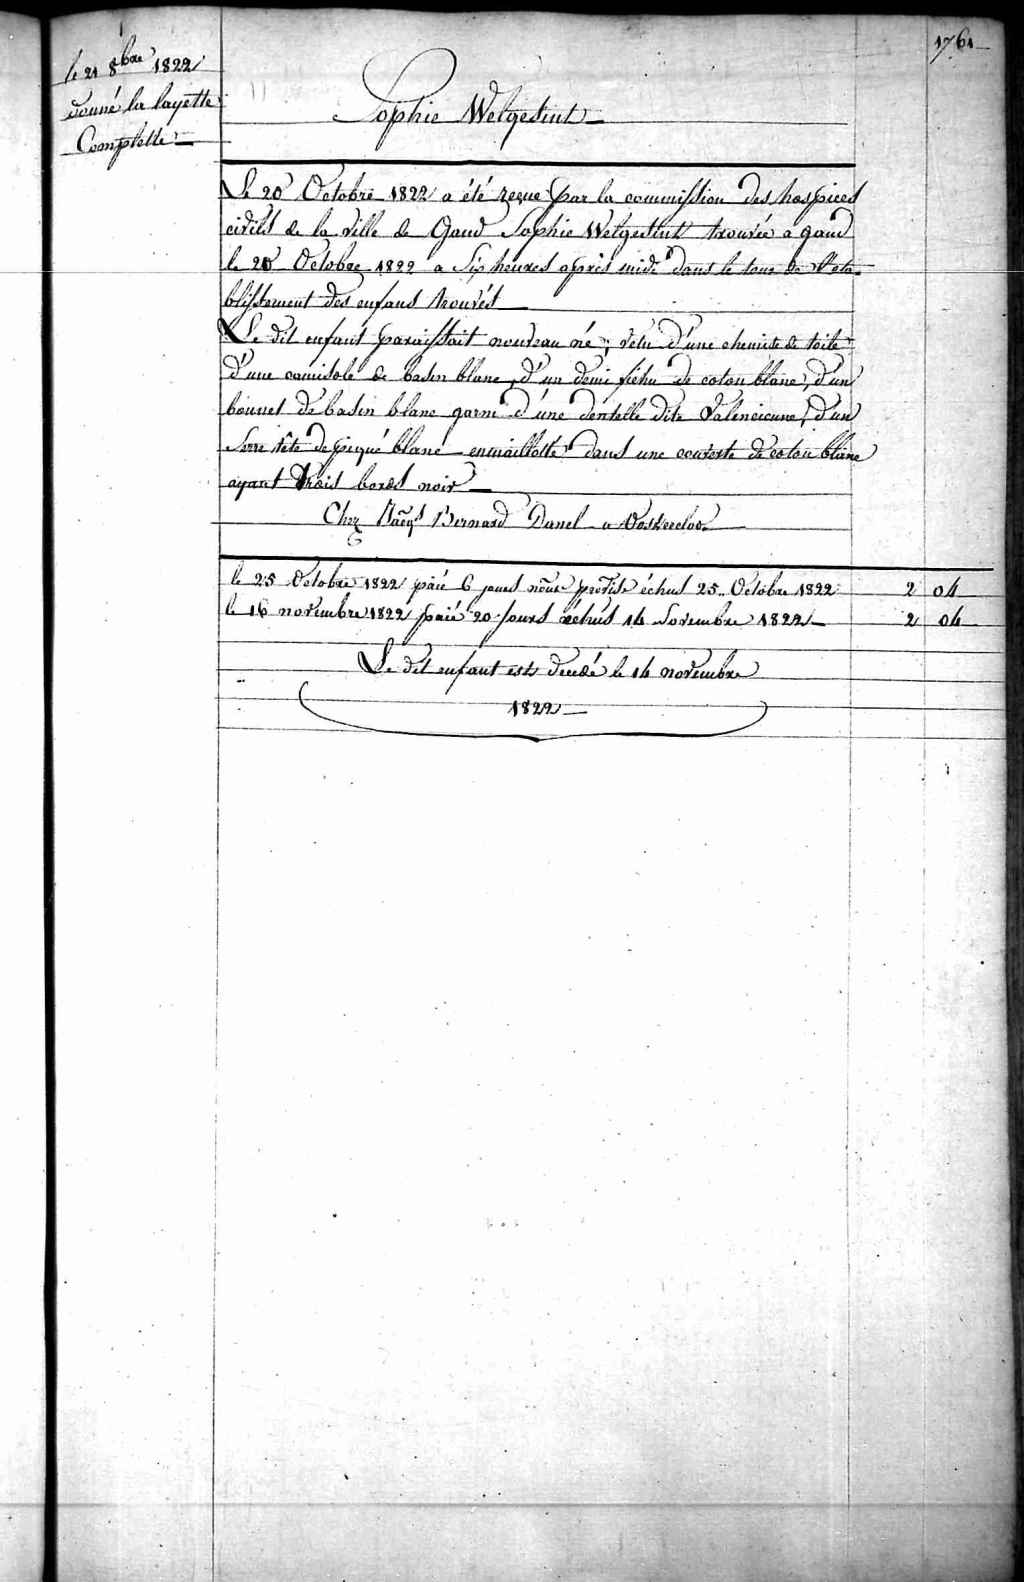 1761
le 21 8bre 1822
donné la layette
Complette
Sophie Welgestint
Le 20 Octobre 1822 a été reçue par la commission des hospices
civils de la ville de Gand Sophie Welgestint trouvée a gand
le 20 Octobre 1822 a Six heures après midi dans le tour de l'éta-
blissement des enfans trouvés
Le dit enfant paraissait nouveau né, vetu d'une chemise de toile
d'une camisole de basin blanc, d'un demi fichu de coton blanc, d'un
bonnet de basin blanc garni d'une dentelle dite Valencienne, d'un
Serre tête de piqué blanc enmaillotté dans une couverte de coton blanc
ayant trois bords noir
Chez Jacqs Bernard Danel a Oosteecloo
le 25 Octobre 1822 paié 6 jours échus 25 Octobre 1822 2 04
le 16 novembre 1822 paié 20 jours échus 14 Novembre 1822 2 04
Le dit enfant est decedé le 14 novembre
1822